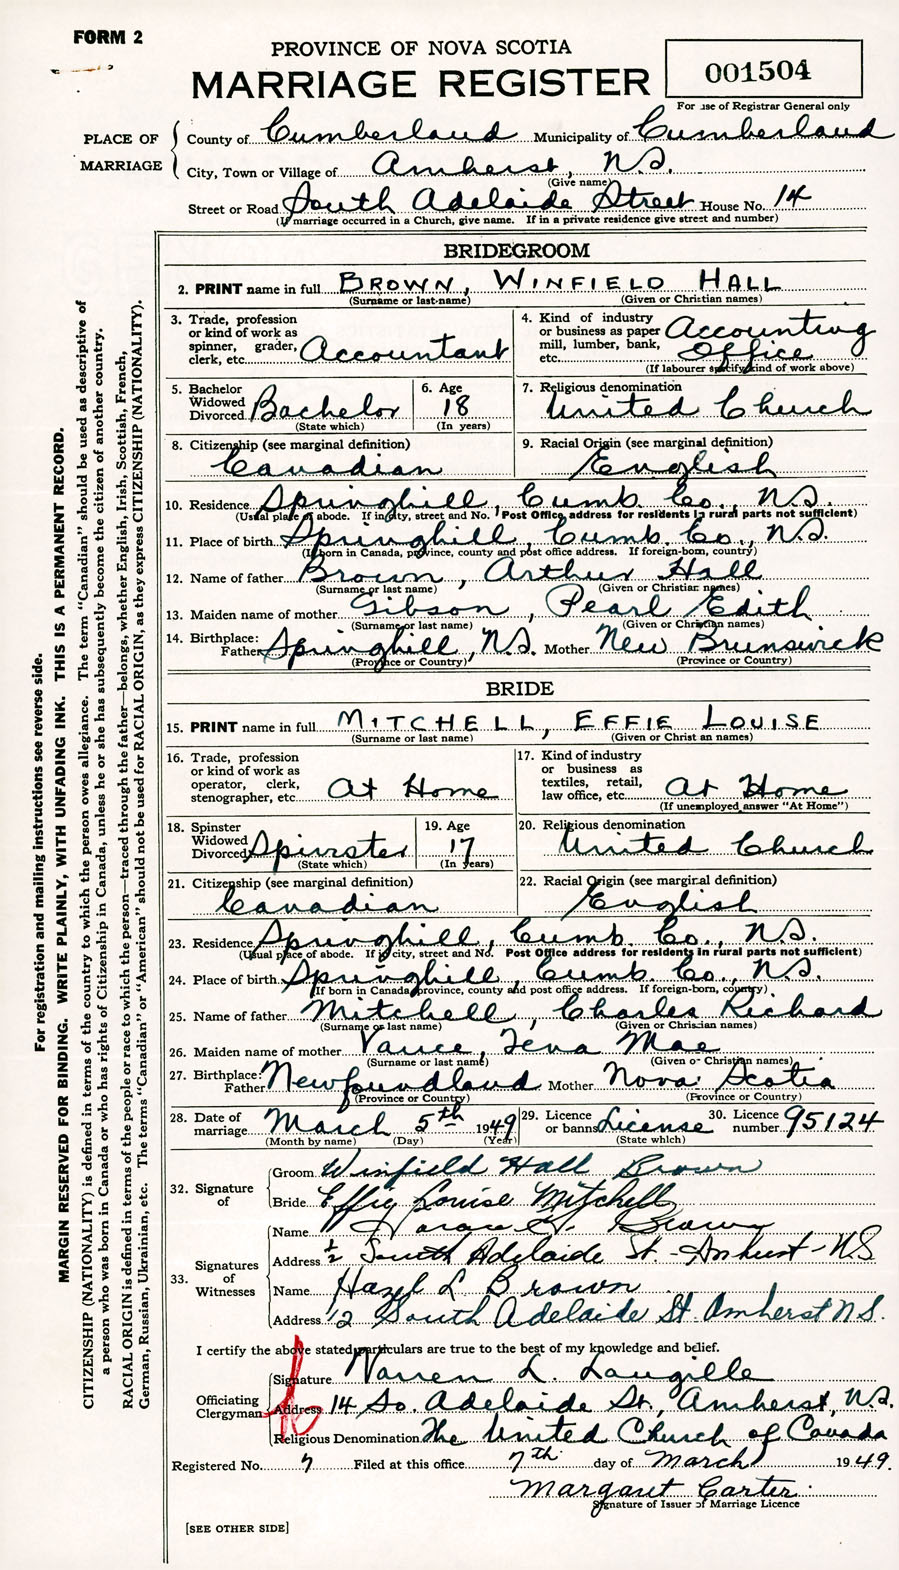 FORM 2
PROVINCE OF NOVA SCOTIA
MARRIAGE REGISTER
001504
For use of Registrar General only
PLACE OF MARRIAGE
County of Cumberland Municipality of Cumberland
City, Town or Village of Amherst, N.S.
(Give name)
Street or Road South Adelaide Street House No. 14
(If marriage occurred in a Church, give name. If in a private residence give street and number)
BRIDEGROOM
2. PRINT name in full BROWN, WINFIELD HALL
(Surname or last name) (Given or Christian names)
3. Trade, profession or kind of work as spinner, grader, clerk, etc. Accountant
4. Kind of industry or business as paper mill, lumber, bank, etc. Accounting Office
(If labourer specify kind of work above)
5. Bachelor Widowed Divorced Bachelor
(State which)
6. Age 18
(In years)
7. Religious denomination United Church
8. Citizenship (see marginal definition) Canadian
9. Racial Origin (see marginal definition) English
10. Residence Springhill, Cumb. Co., N.S.
(Usual place of abode. If in city, street and No. Post Office address for residents in rural parts not sufficient)
11. Place of birth Springhill, Cumb. Co., N.S.
(If born in Canada, province, county and post office address. If foreign-born, country)
12. Name of father Brown, Arthur Hall
(Surname or last name) (Given or Christian names)
13. Maiden name of mother Gibson, Pearl Edith
(Surname or last name) (Given or Christian names)
14. Birthplace: Father Springhill, N.S. Mother New Brunswick
(Province or Country) (Province or Country)
BRIDE
15. PRINT name in full MITCHELL, EFFIE LOUISE
(Surname or last name) (Given or Christian names)
16. Trade, profession or kind of work as operator, clerk, stenographer, etc. At Home
17. Kind of industry or business as textiles, retail, law office, etc. At Home
(If unemployed answer "At Home")
18. Spinster Widowed Divorced Spinster
(State which)
19. Age 17
(In years)
20. Religious denomination United Church
21. Citizenship (see marginal definition) Canadian
22. Racial Origin (see marginal definition) English
23. Residence Springhill, Cumb. Co., N.S.
(Usual place of abode. If in city, street and No. Post Office address for residents in rural parts not sufficient)
24. Place of birth Springhill, Cumb. Co., N.S.
(If born in Canada, province, county and post office address. If foreign-born, country)
25. Name of father Mitchell, Charles Richard
(Surname or last name) (Given or Christian names)
26. Maiden name of mother Vance, Tena Mae
(Surname or last name) (Given or Christian names)
27. Birthplace: Father Newfoundland Mother Nova Scotia
(Province or Country) (Province or Country)
28. Date of marriage March 5th 1949
(Month by name) (Day) (Year)
29. Licence or banns License
(State which)
30. Licence number 95124
32. Signature of
Groom Winfield Hall Brown
Bride Effie Louise Mitchell
33. Signatures of Witnesses
Name Brown
Address 12 South Adelaide St. - Amherst - N.S
Name Hazel L Brown
Address 12 South Adelaide St. Amherst N.S.
I certify the above stated particulars are true to the best of my knowledge and belief.
Officiating Clergyman
Signature Warren L. Langille
Address 14 So. Adelaide St., Amherst, N.S.
Religious Denomination The United Church of Canada
Registered No. 7 Filed at this office 7th day of March 1949.
Margaret Carter
Signature of Issuer of Marriage Licence
[SEE OTHER SIDE]
For registration and mailing instructions see reverse side.
MARGIN RESERVED FOR BINDING. WRITE PLAINLY, WITH UNFADING INK. THIS IS A PERMANENT RECORD.
CITIZENSHIP (NATIONALITY) is defined in terms of the country to which the person owes allegiance. The term "Canadian" should be used as descriptive of
a person who was born in Canada or who has rights of Citizenship in Canada, unless he or she has subsequently become the citizen of another country.
RACIAL ORIGIN is defined in terms of the people or race to which the person—traced through the father—belongs, whether English, Irish, Scottish, French,
German, Russian, Ukrainian, etc. The terms "Canadian" or "American" should not be used for RACIAL ORIGIN, as they express CITIZENSHIP (NATIONALITY).